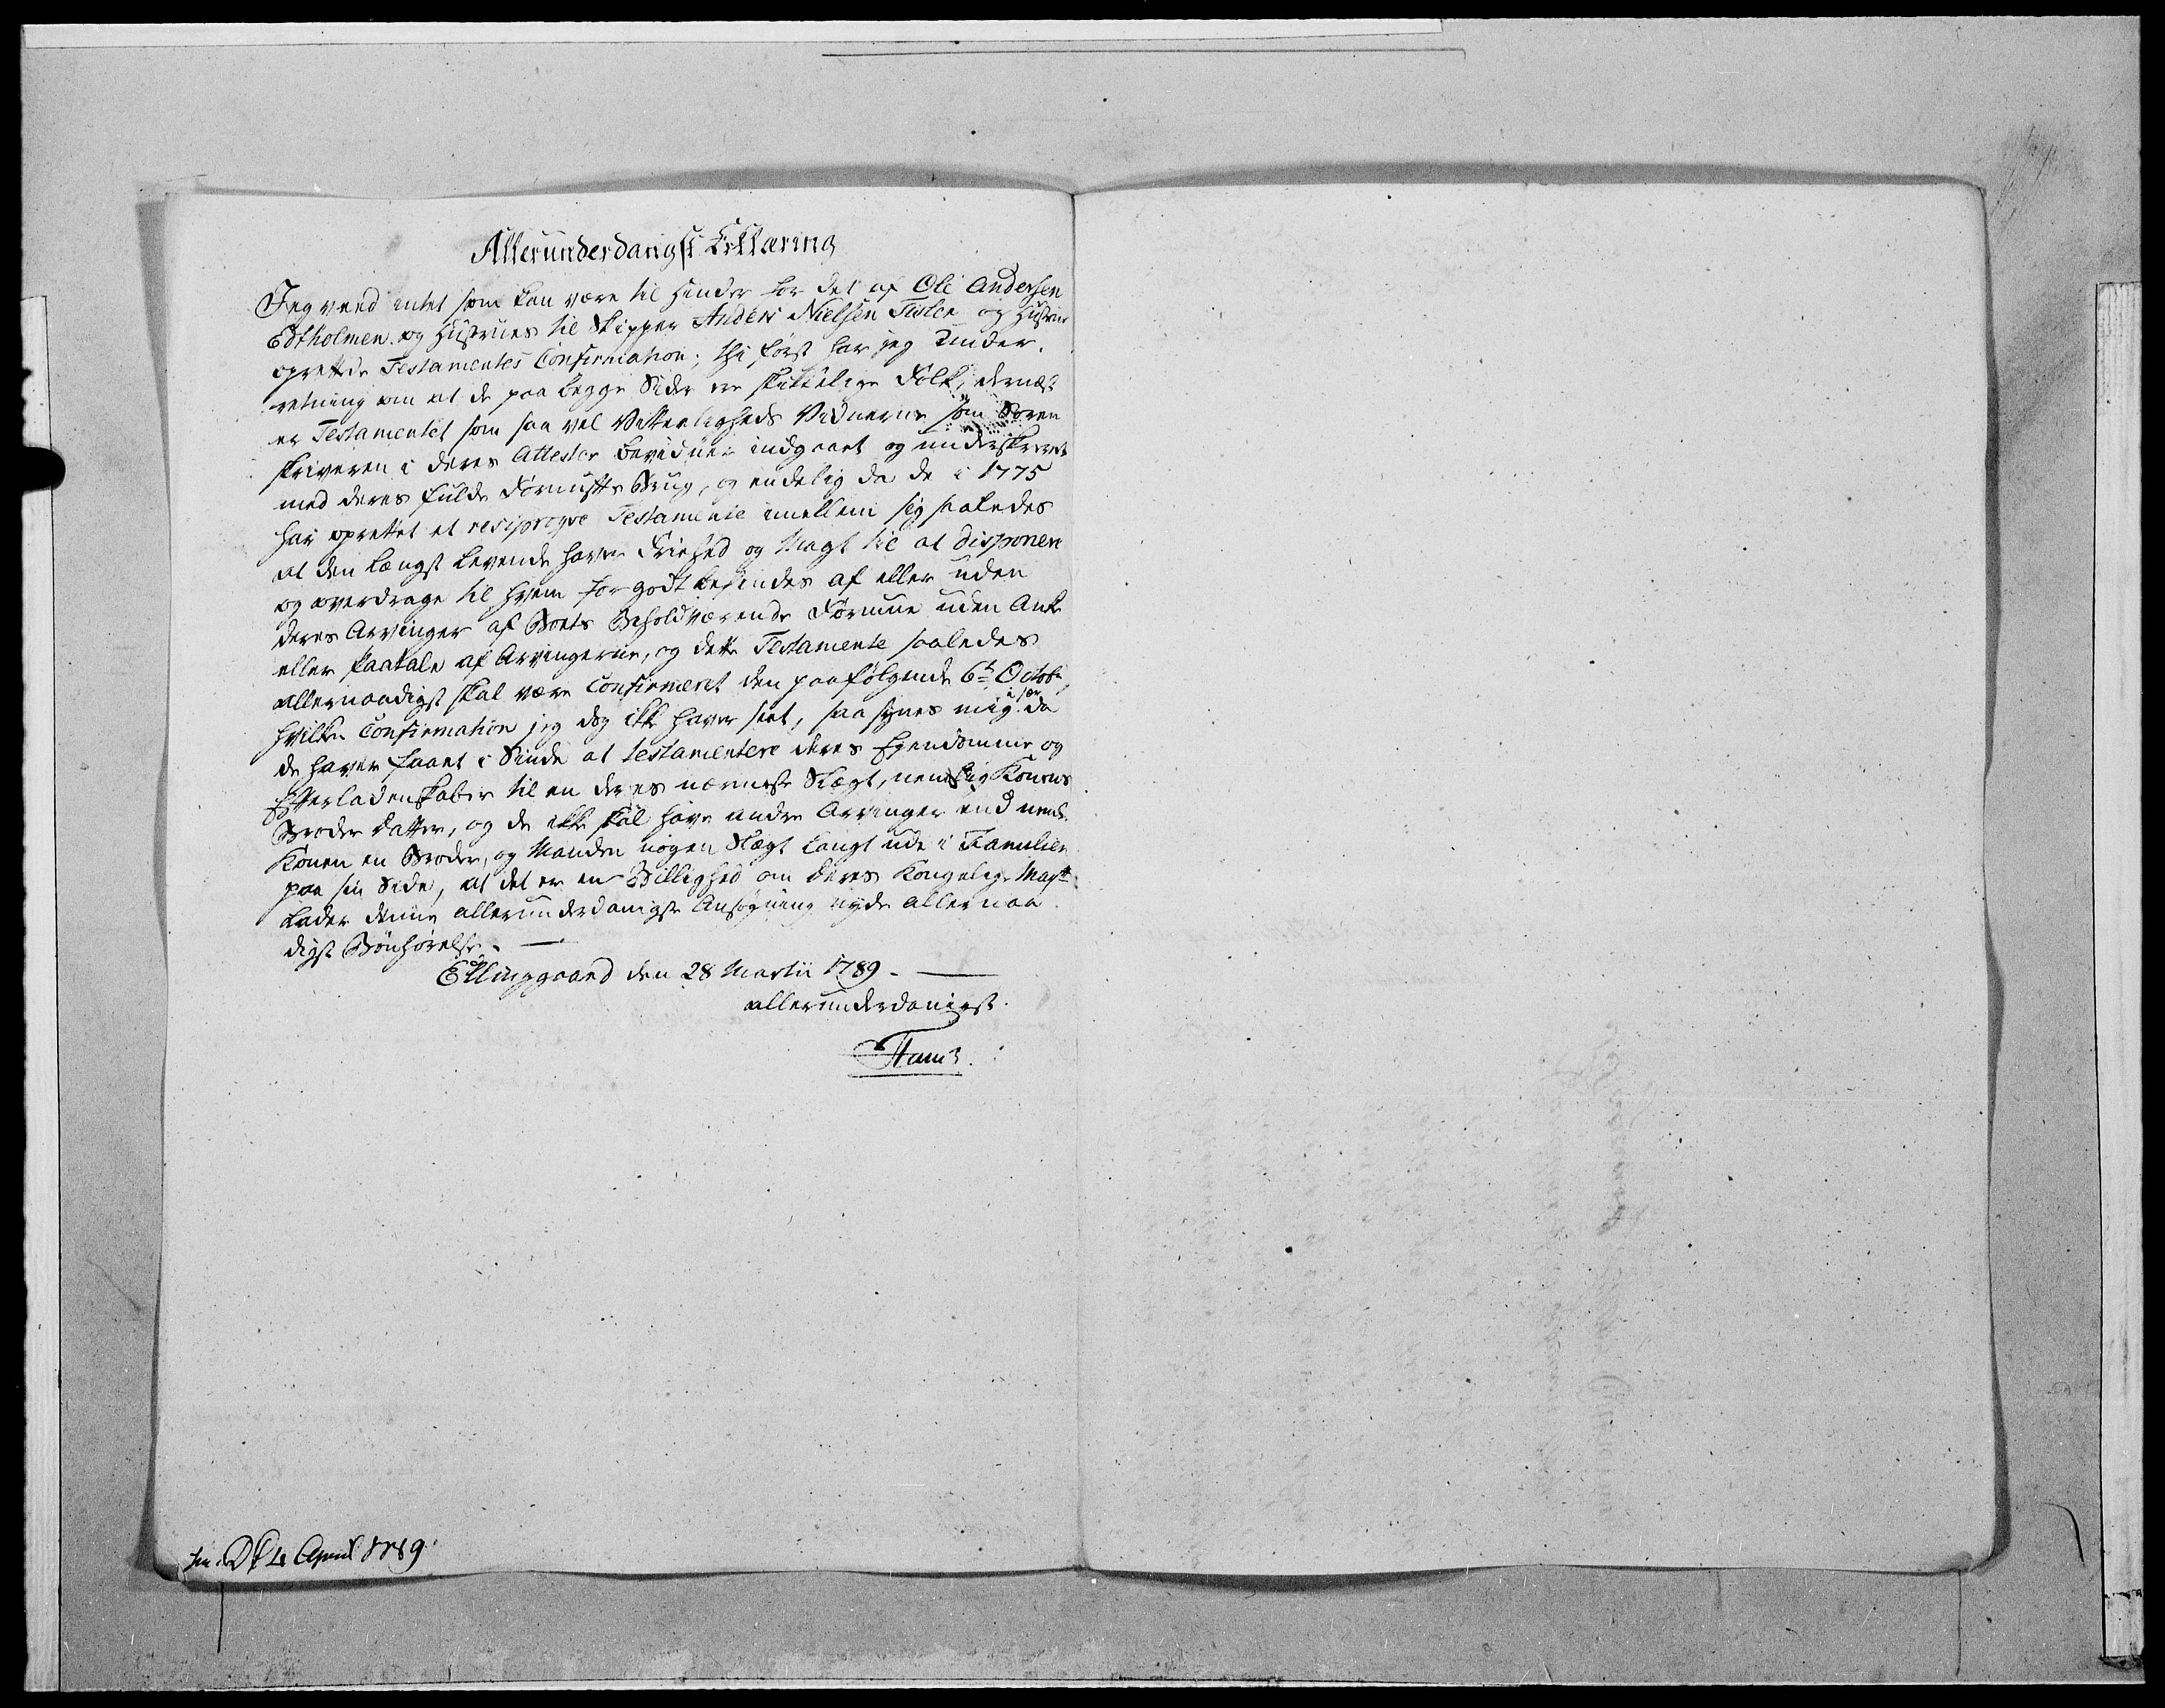 Allerunderdanigst Erklæring
Jeg veed intet som kan være til Hinder for det af Ole Andersen
Edtholmen og Hustrues til Skipper Anders Nielsen Tislen og Hustrue
oprettede Testamentes Confirmation; thi først har jeg Under-
retning om at de paa begge Sider ere skikkelige Folk, dernæst
er Testamentet som saa vel Vitterligheds Vidnerne som Soren
skriveren i deres Attester bevidner indgaaet og underskrevet
med deres fulde Fornufts Brug, og endelig da de i 1775
har oprettet et resiproqve Testamente imellem sig saaledes
at den længst levende haver Friehed og Magt til at disponere
og overdrage til hvem for godt befindes af eller uden
deres Arvinger af Boets Beholdværende Formue uden Anke
eller paatale af Arvingerne, og dette Testamente saaledes
allernaadigst skal være Confirmeret den paafølgende 6t Octobr,
hvilken Confirmation jeg dog ikke haver seet, saa synes mig i sær da
de haver faaet i Sinde at testamentere deres Ejendomme og
Efterladenskaber til en deres nærmeste Slægt, nemlig Konens
Broder Datter, og de ikke skal have andre Arvinger end neml.
Konen en Broder, og Manden nogen Slægt langt ude i Familien
paa sin Side, at det er en Billighed om Deres Kongelige Mayt
lader denne allerunderdanigste Ansøgning nyde allernaa-
digst Bønhørelse. —
Ellinggaard den 28 Martii 1789. —
allerunderdanigst.
April 1789.